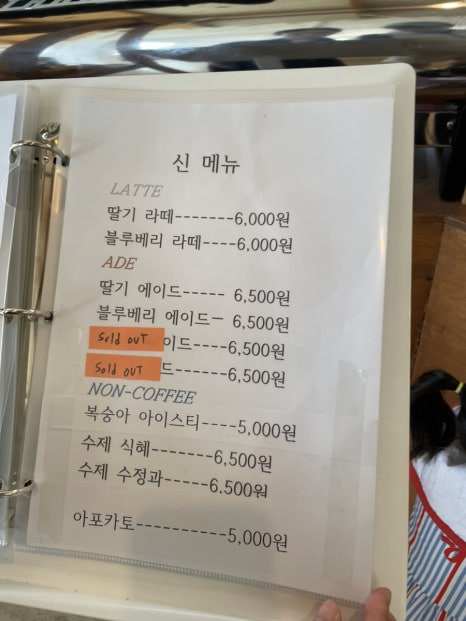 신 메뉴
LATTE
딸기 라떼-------6,000원
블루베리 라떼----6,000원
ADE
딸기 에이드----- 6,500원
블루베리 에이드- 6,500원
Sold OUT 이드----6,500원
Sold OUT 드------6,500원
NON-COFFEE
복숭아 아이스티----5,000원
수제 식혜-------6,500원
수제 수정과-----6.500원
아포카토----------5,000원